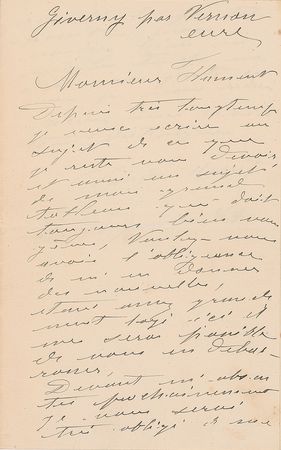 Giverny par Vernon
eure
Monsieur Flament
Depuis très longtemps
je veux écrire au
sujet de ce que
je reste vous devoir
et aussi au sujet
de mon grand
tableau qui doit
toujours bien vous
gêner, Voulez-vous
avoir l'obligeance
de m'en donner
des nouvelles,
étant assez grandement
logé ici il
me sera possible
de vous en débar-
rasser,
Devant m'absen
ter prochainement
je vous serais
très obligé de me